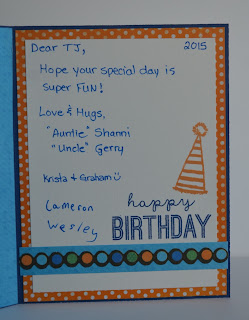 Dear TJ, 2015
Hope your special day is
super FUN!
Love & Hugs,
"Auntie" Shanni
"Uncle" Gerry
Krista + Graham
Cameron
Wesley
happy
BIRTHDAY